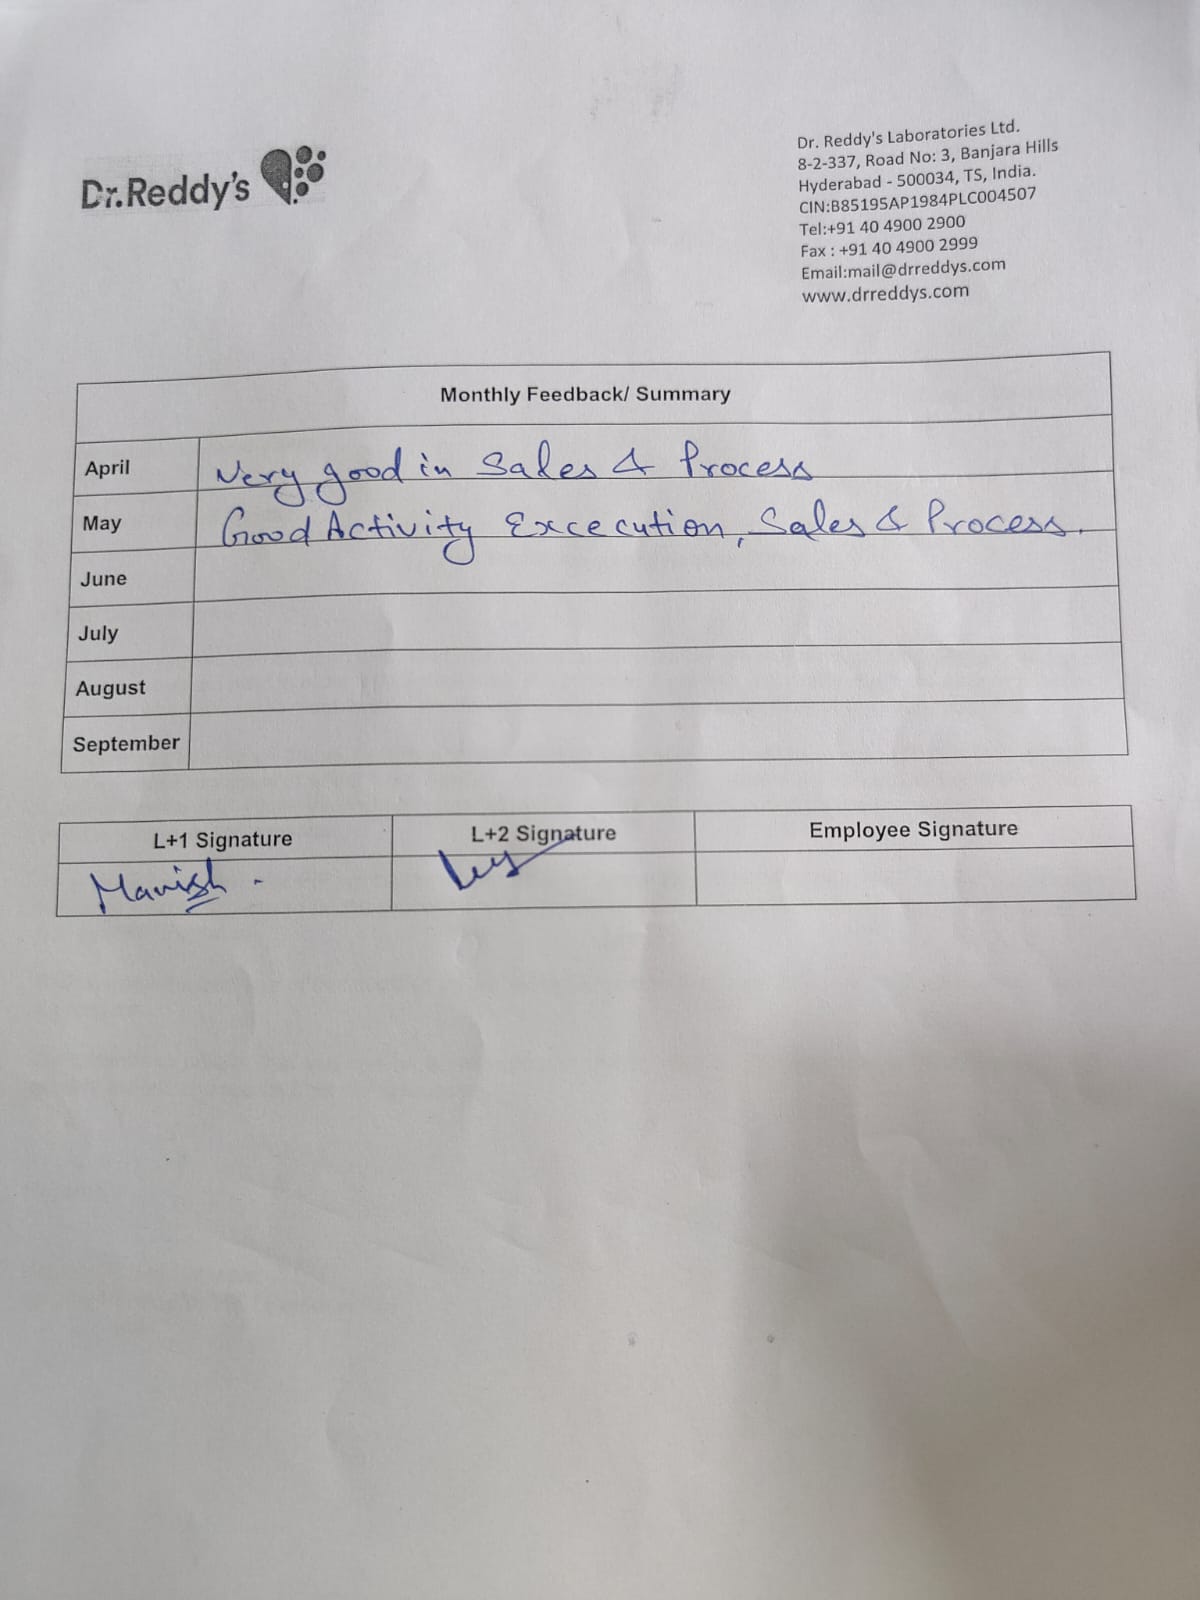 Dr.Reddy's
Dr. Reddy's Laboratories Ltd.
8-2-337, Road No: 3, Banjara Hills
Hyderabad - 500034, TS, India.
CIN:B85195AP1984PLC004507
Tel:+91 40 4900 2900
Fax : +91 40 4900 2999
Email:mail@drreddys.com
www.drreddys.com
Monthly Feedback/ Summary
April Very good in Sales & Process
May Good Activity Excecution, Sales & Process.
June
July
August
September
L+1 Signature L+2 Signature Employee Signature
Manish